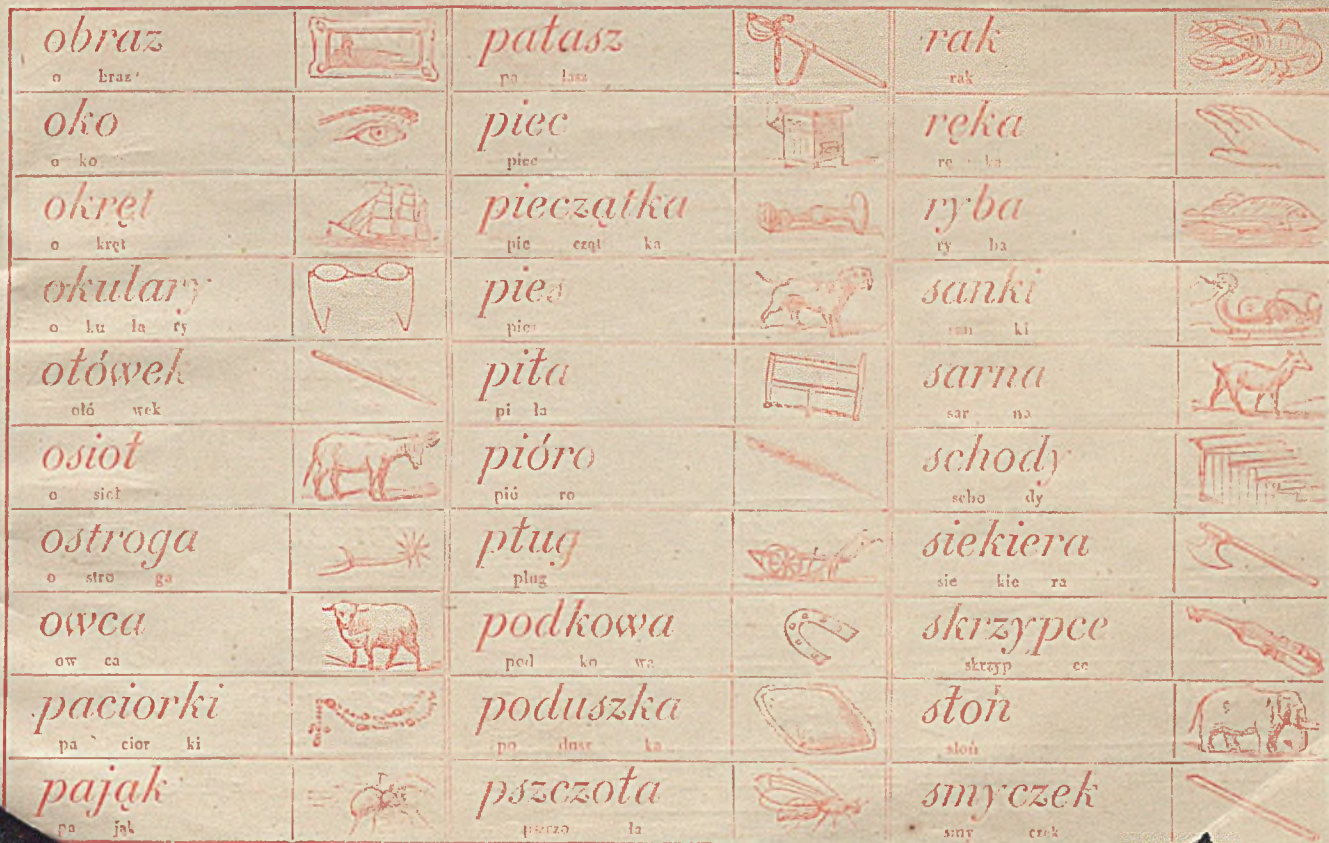 obraz
o braz
oko
o ko
okręt
o kręt
okulary
o ku la ry
ołówek
ołó wek
osioł
o sioł
ostroga
o stro ga
owca
ow ca
paciorki
pa cior ki
pająk
pa jąk
pałasz
pa łasz
piec
piec
pieczątka
pie cząt ka
pies
pies
piła
pi ła
pióro
pió ro
pług
pług
podkowa
pod ko wa
poduszka
po dusz ka
pszczoła
pszczo ła
rak
rak
ręka
rę ka
ryba
ry ba
sanki
san ki
sarna
sar na
schody
scho dy
siekiera
sie kie ra
skrzypce
skrzyp ce
słoń
słoń
smyczek
smy czek